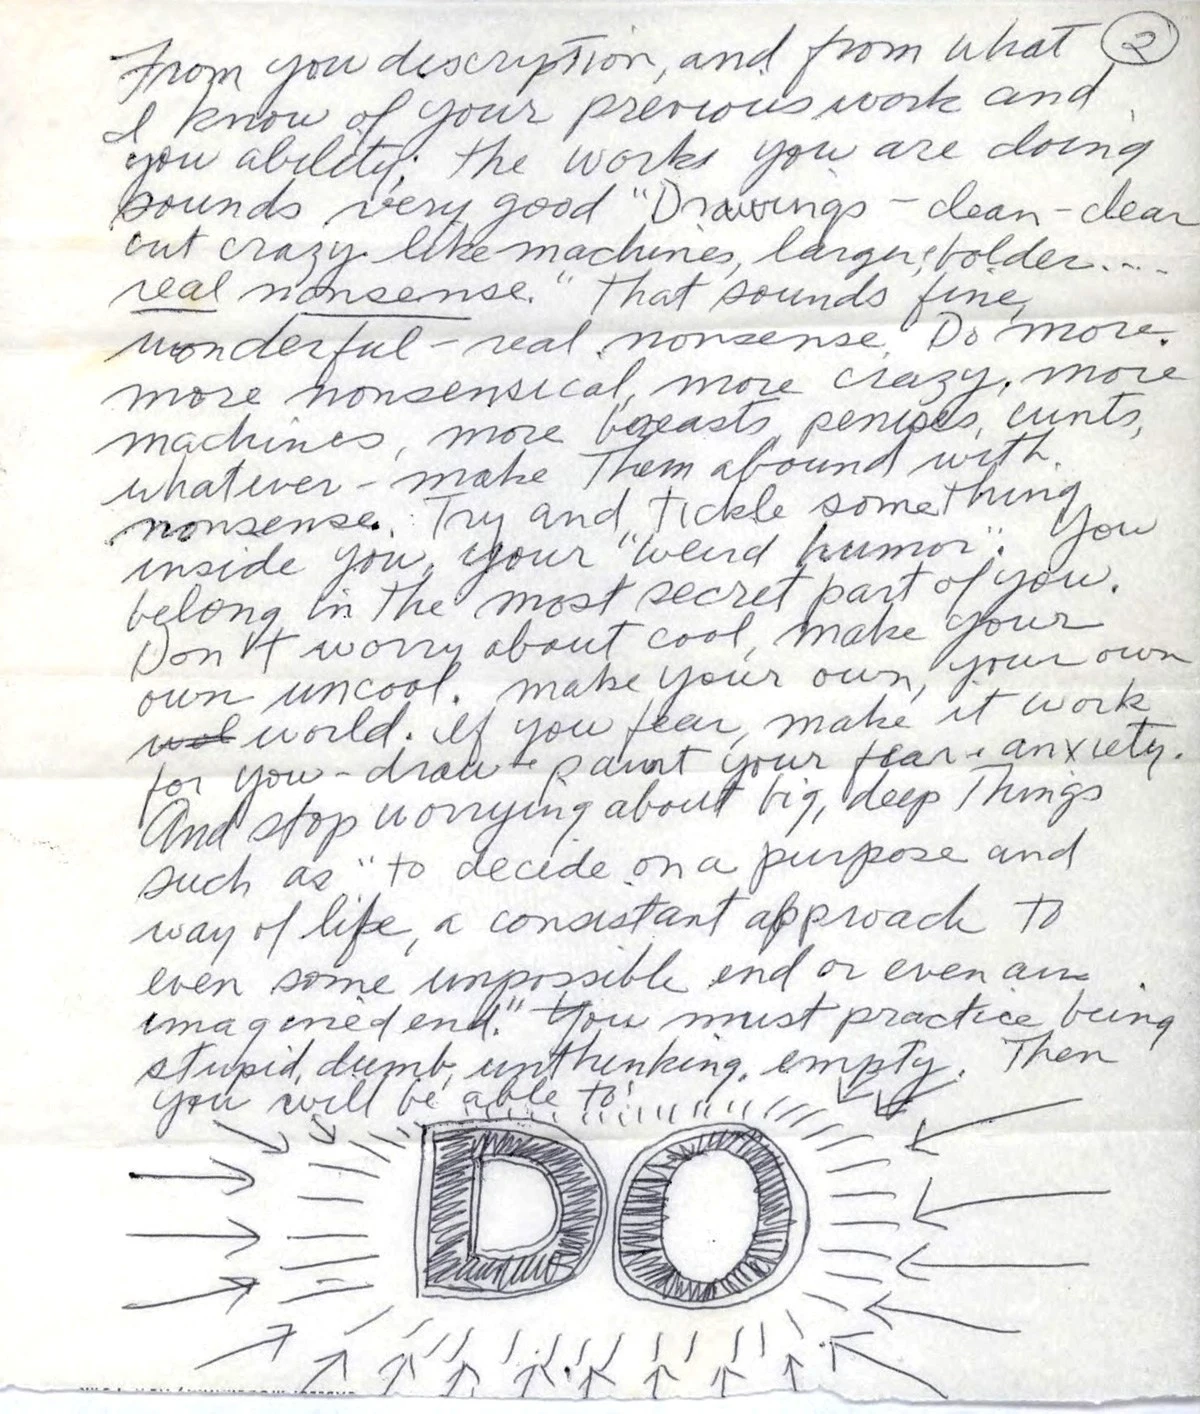 From you description, and from what 2
I know of your previous work and
you ability; the works you are doing
sounds very good "Drawings - clean - clear
but crazy like machines, larger, bolder....
real nonsense." That sounds fine,
wonderful - real nonsense. Do more.
more nonsensical, more crazy, more
machines, more breasts, penises, cunts,
whatever - make them abound with
nonsense. Try and tickle something
inside you, your "weird humor". You
belong in the most secret part of you.
Don't worry about cool, make your
own uncool. make your own, your own
world. If you fear, make it work
for you - draw + paint your fear + anxiety.
And stop worrying about big, deep things
such as "to decide on a purpose and
way of life, a consistant approach to
even some unpossible end or even an
imagined end." You must practice being
stupid, dumb, unthinking, empty. Then
you will be able to!
DO